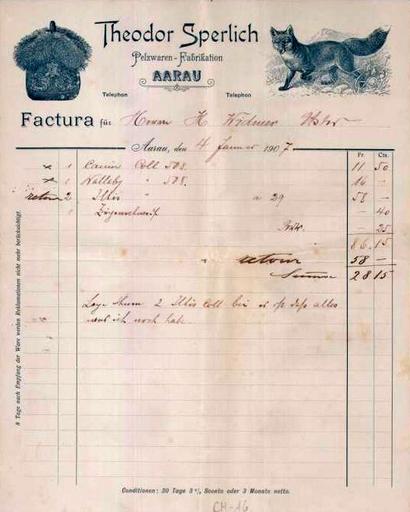 Theodor Sperlich
Pelzwaren-Fabrikation
AARAU
Telephon Telephon
Factura für Herrn H Widmer
Aarau, den 4 Januar 1907
Fr. Cts.
1 Canin Coll 508. 11 50
1 Wallaby " 508. 16 -
retour 2 Iltis a 29 58 -
- 40
Porto - 25
86.15
retour 58 -
Summe 28 15
Lege Ihnen 2 Iltis Coll bei es ist dess alles
was ich noch hab.
8 Tage nach Empfang der Ware werden Reklamationen nicht mehr berücksichtigt.
Conditionen: 30 Tage 3%, Sconto oder 3 Monate netto.
CH-16